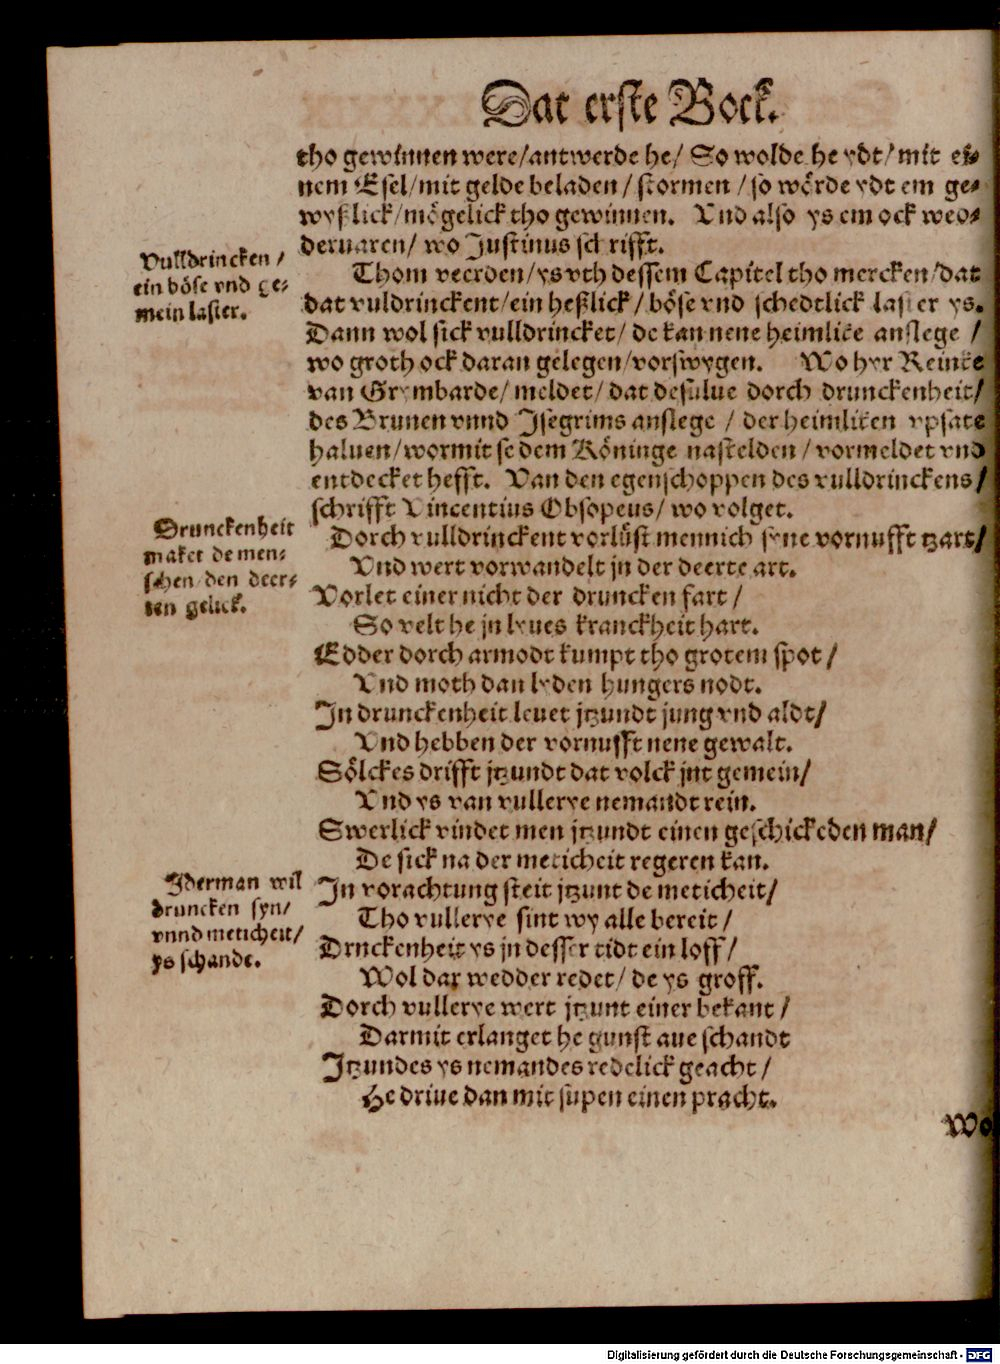 Dat erste Bock.
tho gewinnen were/antwerde he/ So wolde he ydt/ mit ei-
nem Esel/mit gelde beladen/ stormen/so wörde ydt em ge-
wyßlick/mögelick tho gewinnen. Vnd also ys em ock wed-
deruaren/ wo Justinus schrifft.
Vulldrincken/
ein böse vnd ge-
mein laster.
Thom veerden/ys vth dessem Capitel tho mercken/dat
dat vuldrinckent/ein heßlick/böse vnd schedtlick laster ys.
Dann wol sick vulldrincket/ de kan nene heimlike anslege/
wo groth ock daran gelegen/vorswygen. Wo hyr Reinke
van Grymbarde/meldet/dat desülue dorch drunckenheit/
des Brunen vnnd Isegrims anslege/ der heimliken vpsate
haluen/wormit se dem Köninge nastelden/vormeldet vnd
entdecket hefft. Van den egenschoppen des vulldrinckens/
schrifft Vincentius Obsopeus/ wo volget.
Drunckenheit
maket de men-
schen den deer-
ten gelick.
Dorch vulldrinckent vorlüst mennich syne vornufft tzart/
Vnd wert vorwandelt jn der deerte art.
Vorlet einer nicht der druncken fart/
So velt he jn lyues kranckheit hart.
Edder dorch armodt kumpt tho grotem spot/
Vnd moth dan lyden hungers nodt.
In drunckenheit leuet jtzundt jung vnd aldt/
Vnd hebben der vornufft nene gewalt.
Sölckes drifft jtzundt dat volck jnt gemein/
Vnd ys van vullerye nemandt rein.
Swerlick vindet men jtzundt einen geschickeden man/
De sick na der meticheit regeren kan.
Iderman wil
druncken syn/
vnnd meticheit/
ys schande.
In vorachtung steit jtzunt de meticheit/
Tho vullerye sint wy alle bereit/
Drnckenheit ys jn desser tidt ein loff/
Wol dar wedder redet/ de ys groff.
Dorch vullerye wert jtzunt einer bekant/
Darmit erlanget he gunst ane schandt
Itzundes ys nemandes redelick geacht/
He driue dan mit supen einen pracht.
Wo
Digitalisierung gefördert durch die Deutsche Forschungsgemeinschaft - DFG